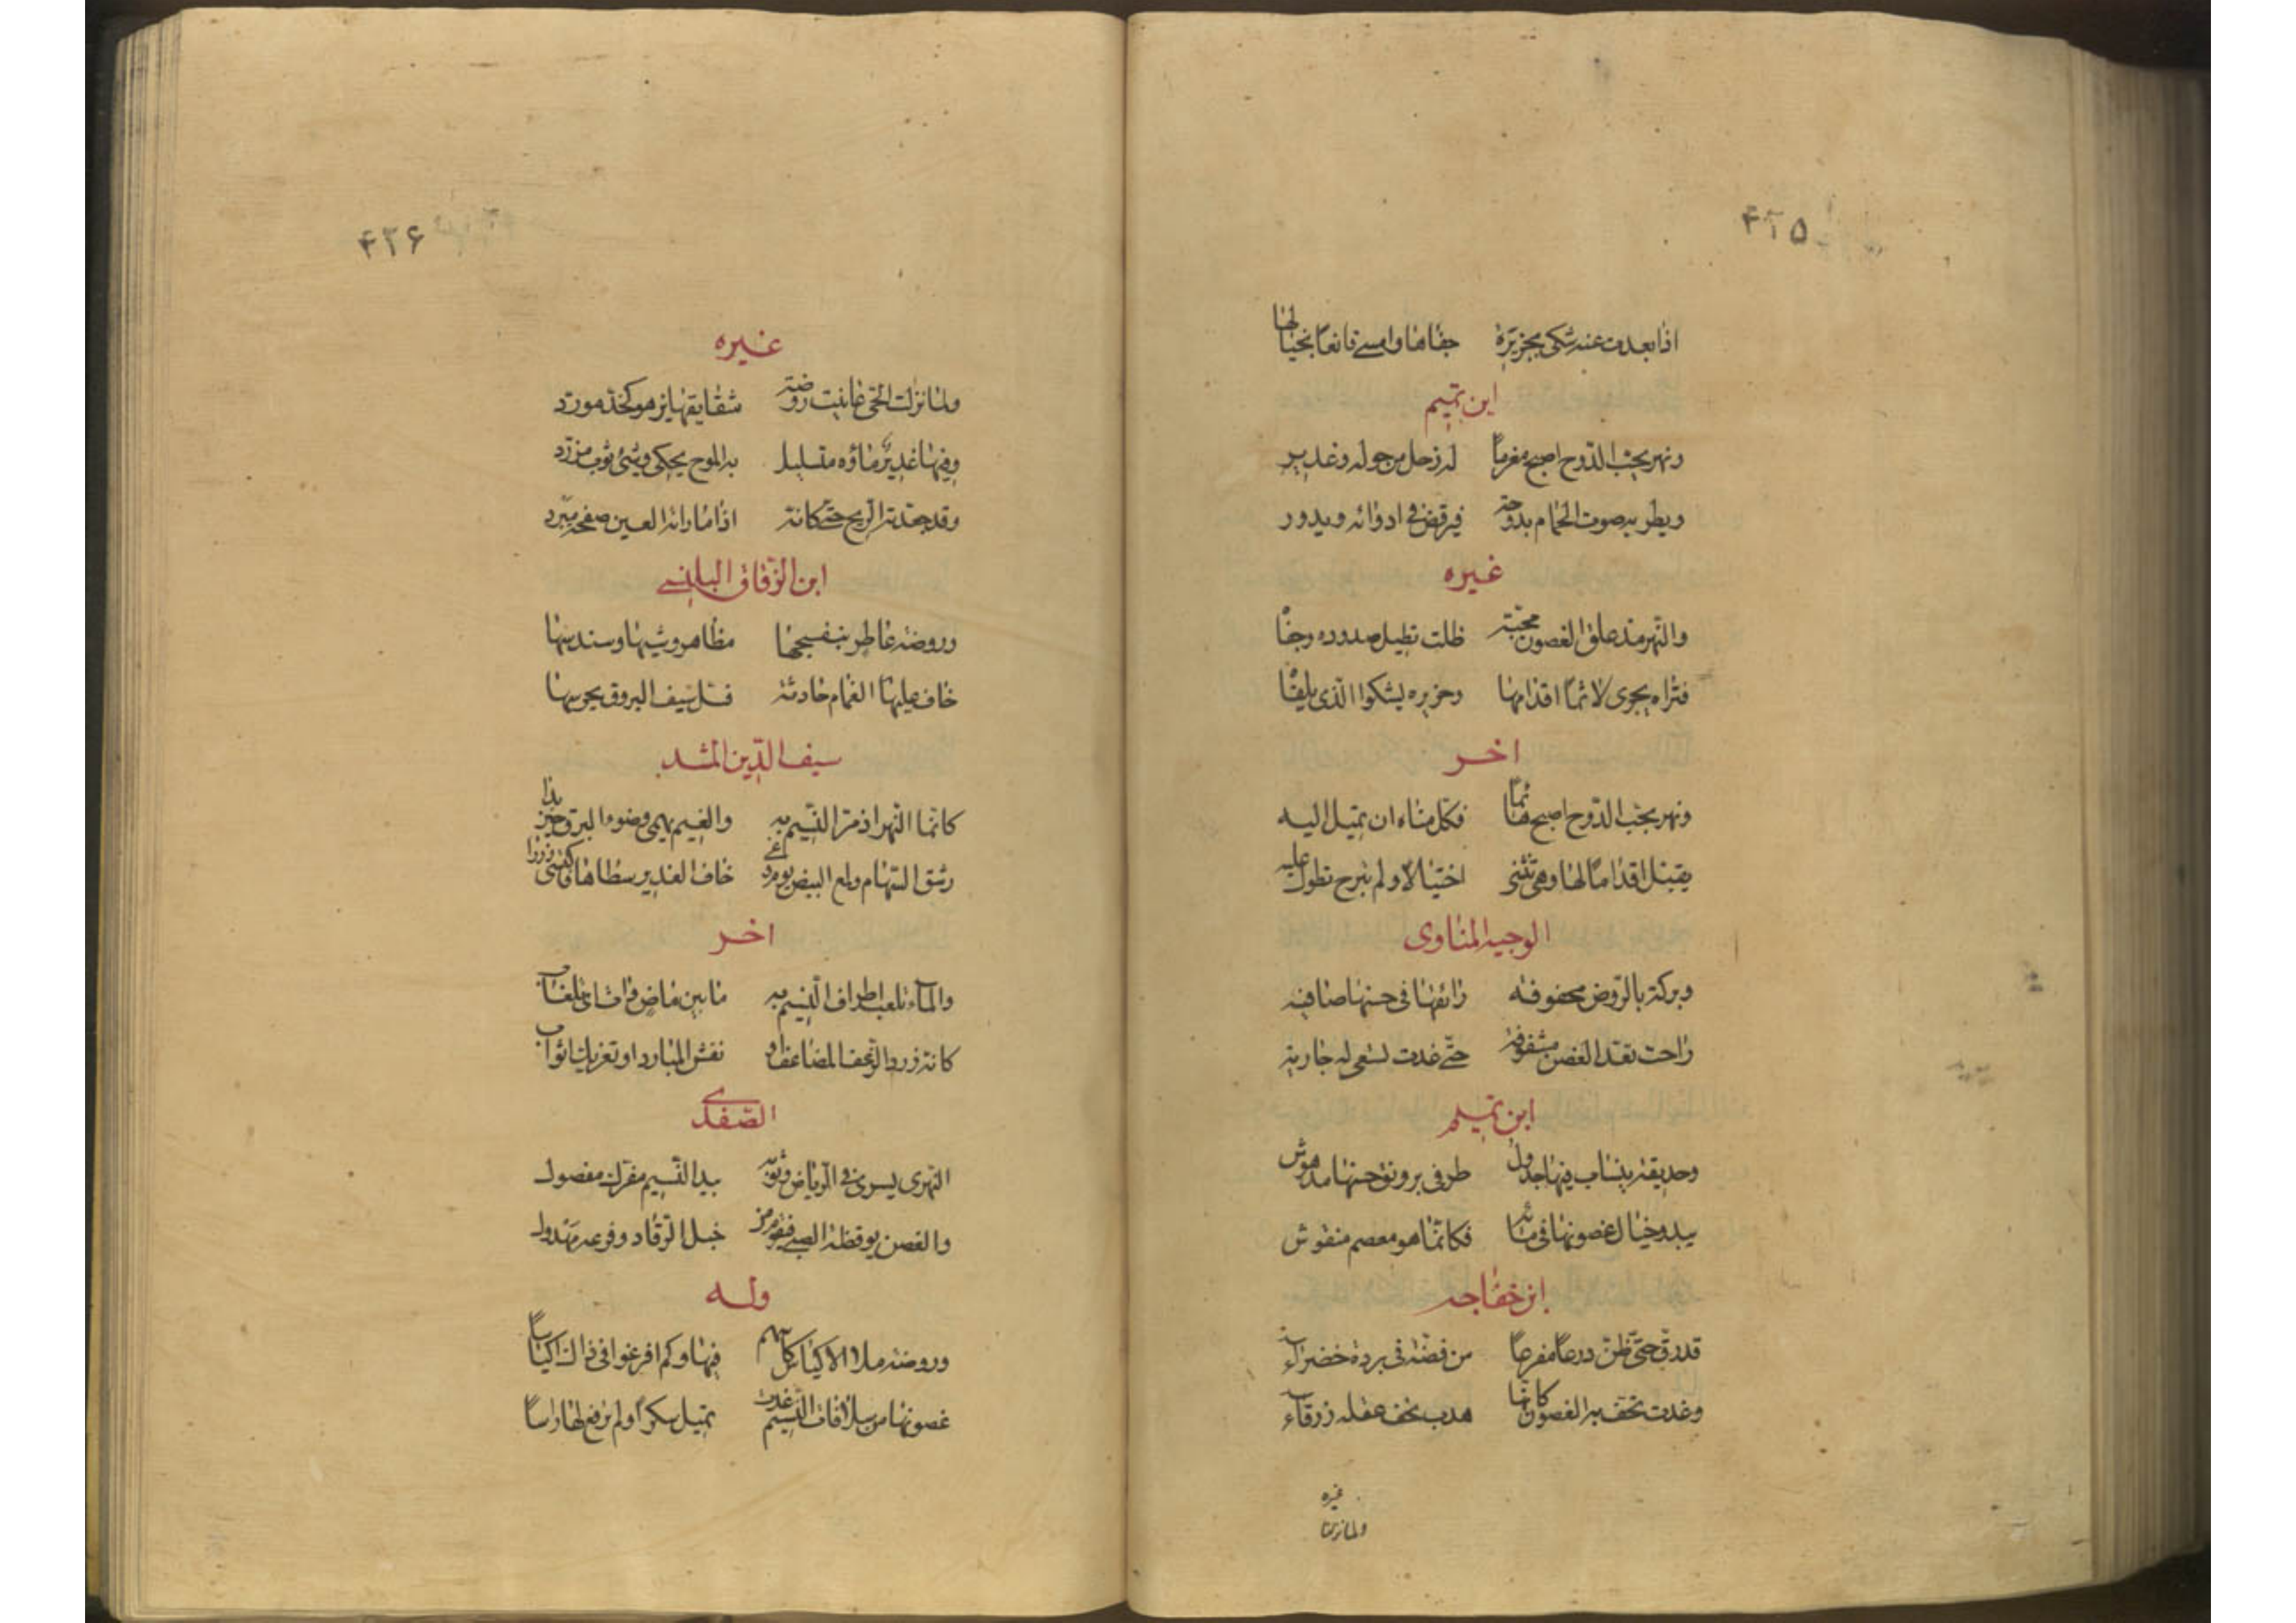 ۴۲۵
اذا بعدت عنه شكى بخريره جفاها وامسى قانعا بخيالها
ابن تميم
ونهر يحب الدوح اصبح مغرما له زجل من حوله وغدير
ويطربه صوت الحمام بدوحة فيرقص فى ادواله ويدور
غيره
والنهر مذ علق الغصون محبة ظلت تطيل صدوده وجفا
فتراه يجرى لاثما اقدامها وخريره يشكوا الذى يلقا
اخر
ونهر يحب الدوح اصبح هائما فكل مناه ان تميل اليه
يقبل اقداما لها وهى تنثنى اختيالا ولم تبرح تطول عليه
الوجيه المناوى
وبركة بالروض محفوفه رائقها فى حسنها صافيه
راحت بقد الغصن مشغوفة حتى غدت تسعى له جاريه
ابن تميم
وحديقة ينساب فيها جدول طرفى برونق حسنها مدهوش
يبدو خيال غصونها فى مائه فكانما هو معصم منقوش
ابن خفاجه
قد رق حتى ظن درعا مفرعا من فضة فى بردة خضراء
وغدت تحف به الغصون كانها هدب تحف بمقلة زرقاء
غيره
ولما نزلنا
۴۲۶
غيره
ولما نزلت الحى عاينت روضة شقايقها يزهو كخد مورد
وفيها غدير ماؤه متسلسل به الموج يحكى وشى ثوب مزرد
وقد جعدته الريح حتى كانه اذا ما راته العين صفحة مبرد
ابن الزقاق البلنسى
وروضة عاطر بنفسجها مظاهر وشيها وسندسها
خاف عليها الغمام حادثة فسل سيف البروق يحرسها
سيف الدين المشد
كانما النهر اذ مر النسيم به والغيم يهمى وضوء البرق حين بدا
رشق السهام ولمع البيض يوم وغى خاف الغدير سطاها فاكتسى زردا
اخر
والماء تلعب اطراف النسيم به ما بين ماض
كانه زرد الزغف المضاعف او نقش المبارد او تفريك اثواب
الصفدى
النهر يسرى فى الرياض وثوبه بيد النسيم مفرك مصقول
والغصن يوقظه الصبا خبل الرقاد وفرعه مهدول
وله
وروضة ملا الاكياس كلهم فيها وكم افرغوا فى ذاك اكياسا
غصونها من سلافات النسيم غدت تميل سكرا ولم ترفع لها راسا